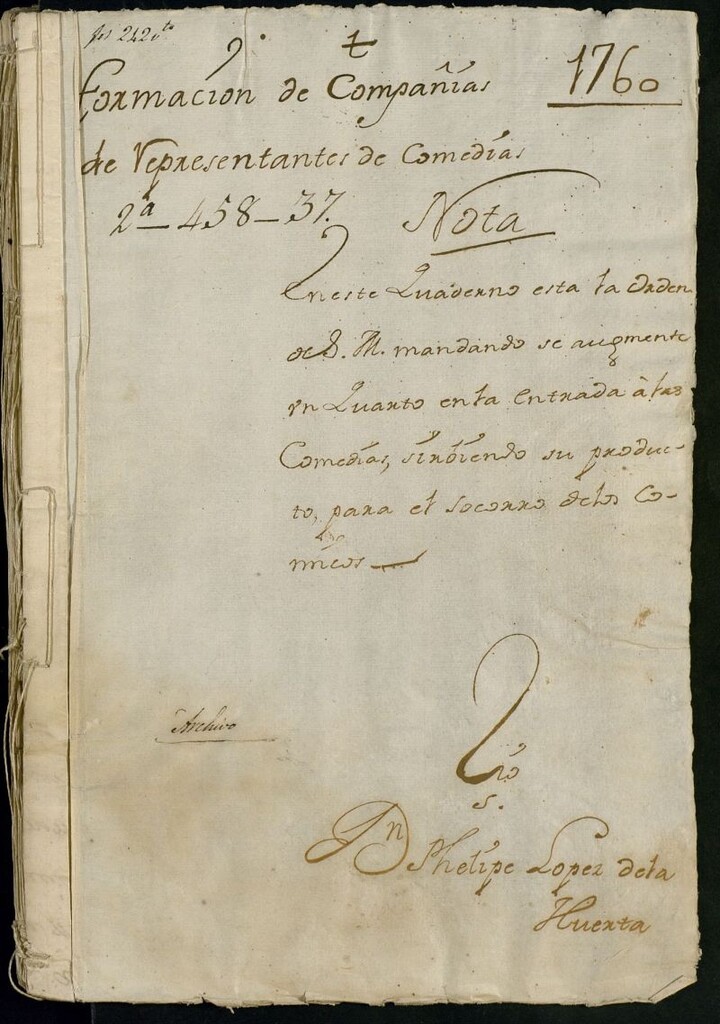 fos 242 
✝
Formacion de Compañias 1760
de Representantes de Comedias
2ª - 458 - 37. Nota
En este Quaderno esta la Orden
de S. M. mandando se augmente
vn Quarto en la Entrada à las
Comedias, sirbiendo su produc-
to, para el socorro delos Co-
micos
Archivo
S.rio
Dn Phelipe Lopez dela
Huerta